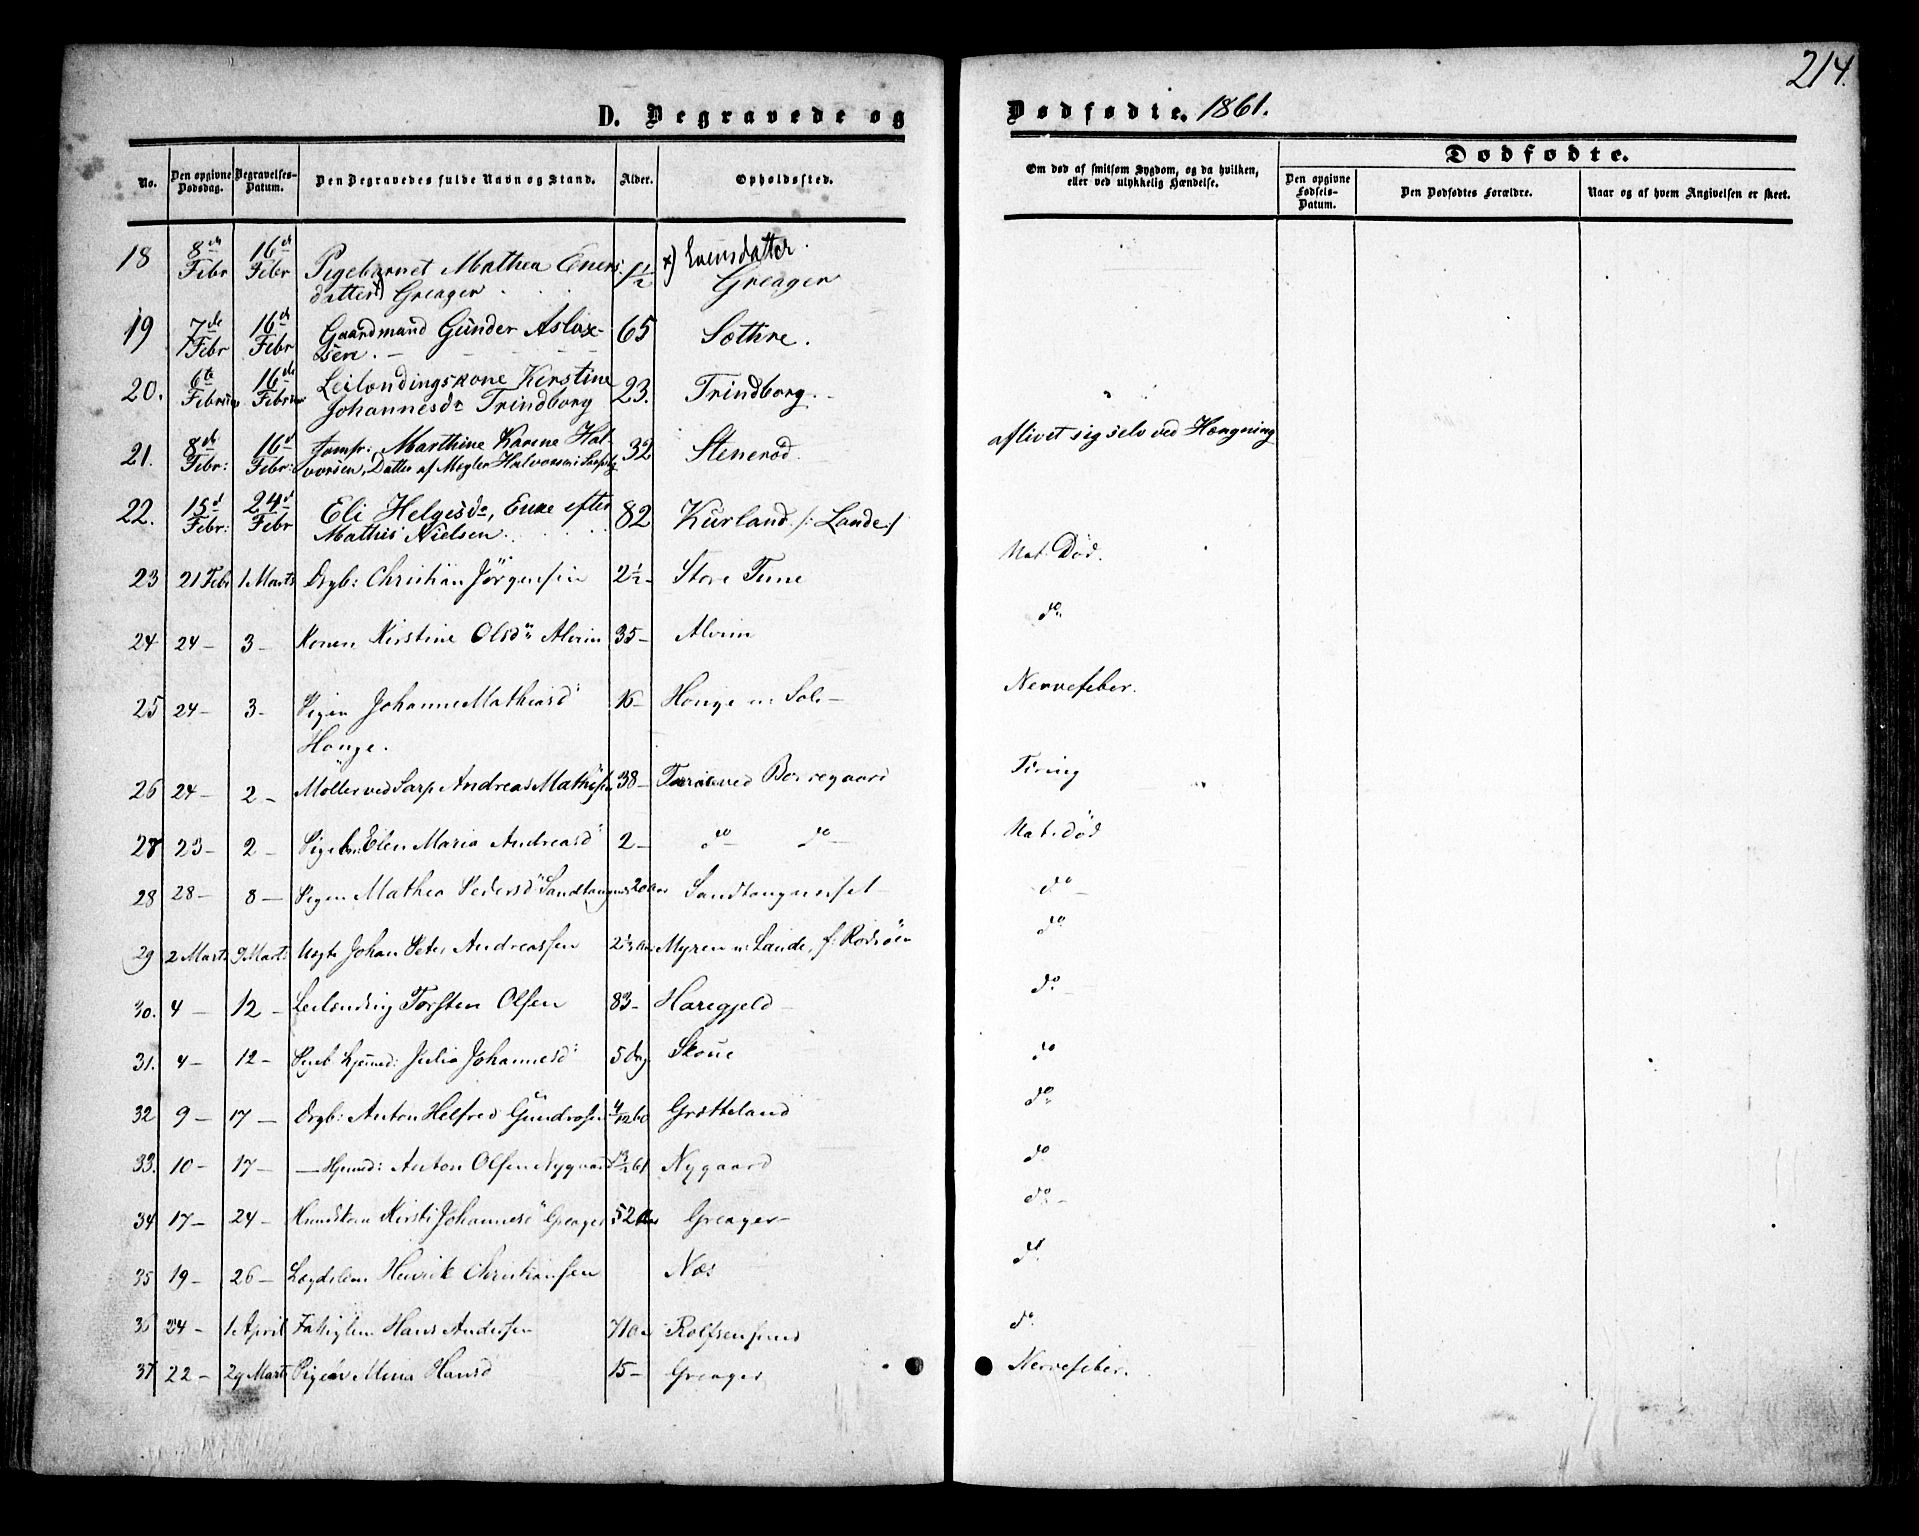 214.
D. Begravede og Dødfødte. 1861.
No. | Den opgivne Dødsdag. | Begravelses-Datum. | Den Begravedes fulde Navn og Stand. | Alder. | Opholdssted. | Om død af smitsom Sygdom, og da hvilken, eller ved ulykkelig Hændelse. | Dødfødte. | Den opgivne Fødsels-Datum. | Den Dødfødtes Forældre. | Naar og af hvem Angivelsen er skeet.
18 8de Febr 16de Febr Pigebarnet Mathea Eners- 1½ x) Evensdatter
datter x) Greager Greager
19 7de Febr 16de Febr Gaardmand Gunder Aslax- 65 Sæthre.
sen.
20. 6te Februar 16de Februar Leilændingskone Kirstine 23. Trindborg.
Johannesdr Trindborg
21. 8de Febr: 16d Febr: Jomfr: Marthine Karene Hal- 32 Stenerød. aflivet sig selv ved Hængning
vorsen, Datter af Megler Halvorsen i Sarpsbg
22. 15d Febr: 24d Febr Eli Helgesdr, Enke efter 82 Kurland /: Lande:/
Mathis Nielsen. Nat. Død.
23 21 Febr 1 Marts Drgb: Christian Jörgensen 2½ Store Tune do
24 24 3 Konen Kirstine Olsdr Alvim 35 Alvim
25 24 3 Pigen Johanne Mathiasd 16 Houge u: Sol Nervefeber.
Houge.
26 24 2 Møller ved Sarp Andreas Mathisen 38 Tarris ved Borregaard Tæring
27 23 2 Pigeb: Elen Maria Andreasd 2 do do Nat. død
28 28 8 Pigen Mathea Pedersd Sandtangen 20 Aar Sandtangen do
29 2 Marts 9 Marts Ungk Johan Peter Andreassen 2½ Aar Myren u: Lande, f: Rodsöen do
30. 4 12 Leilænding Torsten Olsen 83 Haregjeld do
31. 4 12 Pigeb hjemmed: Julia Johannesd 5 Dag Skoue do
32 9 17 Drgb: Anton Helfred Gundersen 4/12 60 Grøtteland do
33. 10 17 — Hjemmd: Anton Olsen Nygaard 13/2 61 Nygaard do
34 17 24 Huusk: Kirsti Johannesd Greager 52 Aar Greager do
35 19 26 Lægdslem Henrik Christiansen Næs do
36 24 1 April Fattiglem Hans Andersen 71 Aar Rolfsensund do
37 22 29 Marts Pigen Mina Hansd 15 Greager Nervefeber.